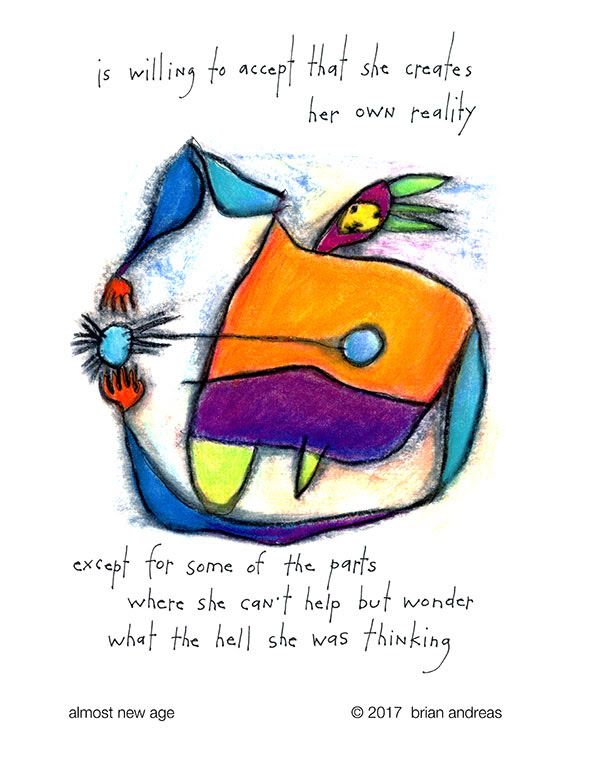 is willing to accept that she creates
her own reality
except for some of the parts
where she can't help but wonder
what the hell she was thinking
almost new age © 2017 brian andreas